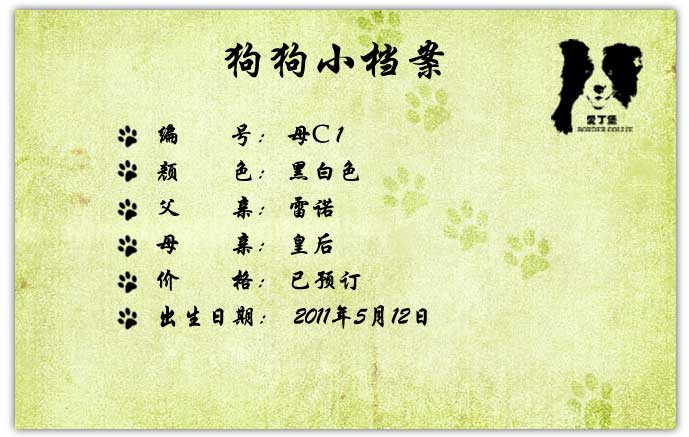 狗狗小档案
愛丁堡
BORDER COLLIE
编号：母C1
颜色：黑白色
父亲：雷诺
母亲：皇后
价格：已预订
出生日期：2011年5月12日